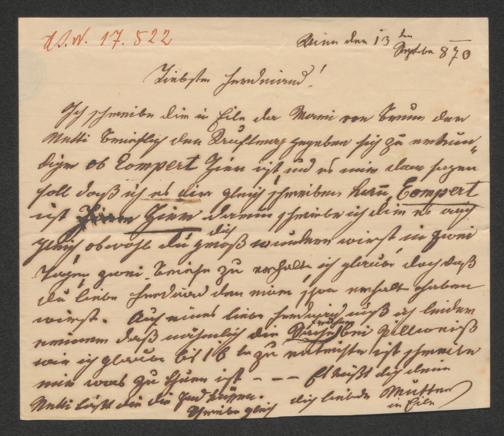 H.I.N. 17.522
Wien den 13ten
Septber 870
Liebster Ferdinand!
Ich schreibe dir in Eile da Marie von Braun der
Netti brieflich den Auftrag gegeben sich zu erkun-
digen ob Compert hier ist und es mir dann sagen
soll daß ich es dir gleich schreibe. Compert
ist hier darum schreibe ich dir es auch
gleich obwohl du dich groß wundern wirst in zwei
Tagen zwei Briefe zu erhalten ich glaube doch daß
du liebe Ferdinand den einen schon erhalten haben
wirst. Auch eines liebe Ferdinand muß ich leider
nennen daß nämlich die bei Zillweiß
wie ich glaube bis 16 te zu entrichten ist schreibe
mir was zu thuen ist - - - Es küßt dich deine
Netti läßt dir die Hand küssen.
Schreibe gleich dich liebende Mutter
in Eile